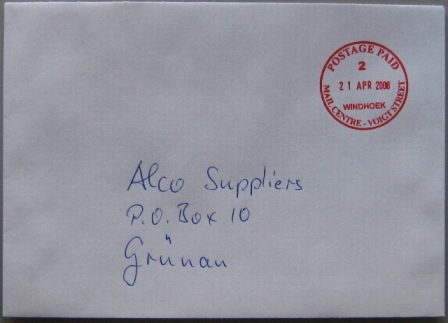 POSTAGE PAID
2
21 APR 2008
WINDHOEK
MAIL CENTRE - VOIGT STREET
Alco Suppliers
P.O. Box 10
Grünau